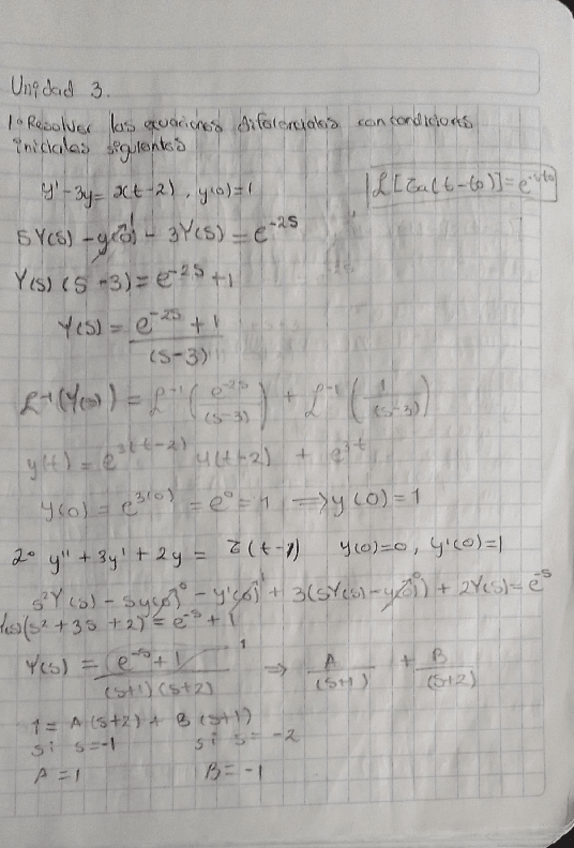 Unidad 3.
1º Resolver las ecuaciones diferenciales con condiciones
iniciales siguientes
y' - 3y = x(t-2), y(0) = 1
SY(s) - y(0)¹ - 3Y(s) = e^{-2s}
Y(s) (s-3) = e^{-2s} + 1
Y(s) = \frac{e^{-2s} + 1}{(s-3)}
ℒ⁻¹(Y(s)) = ℒ⁻¹(\frac{e^{-2s}}{(s-3)}) + ℒ⁻¹(\frac{1}{(s-3)})
y(t) = e^{3(t-2)} u(t-2) + e^{3t}
y(0) = e^{3(0)} = e⁰ = 1 ⟹ y(0) = 1
2º y'' + 3y' + 2y = δ(t-1) y(0)=0, y'(0)=1
s²Y(s) - sy(0)⁰ - y'(0)¹ + 3(sY(s) - y(0)⁰) + 2Y(s) = e^{-s}
(s² + 3s + 2) = e^{-s} + 1
Y(s) = \frac{e^{-s} + 1}{(s+1)(s+2)} 1 ⟹ \frac{A}{(s+1)} + \frac{B}{(s+2)}
1 = A(s+2) + B(s+1)
si s=-1 si s=-2
A=1 B=-1